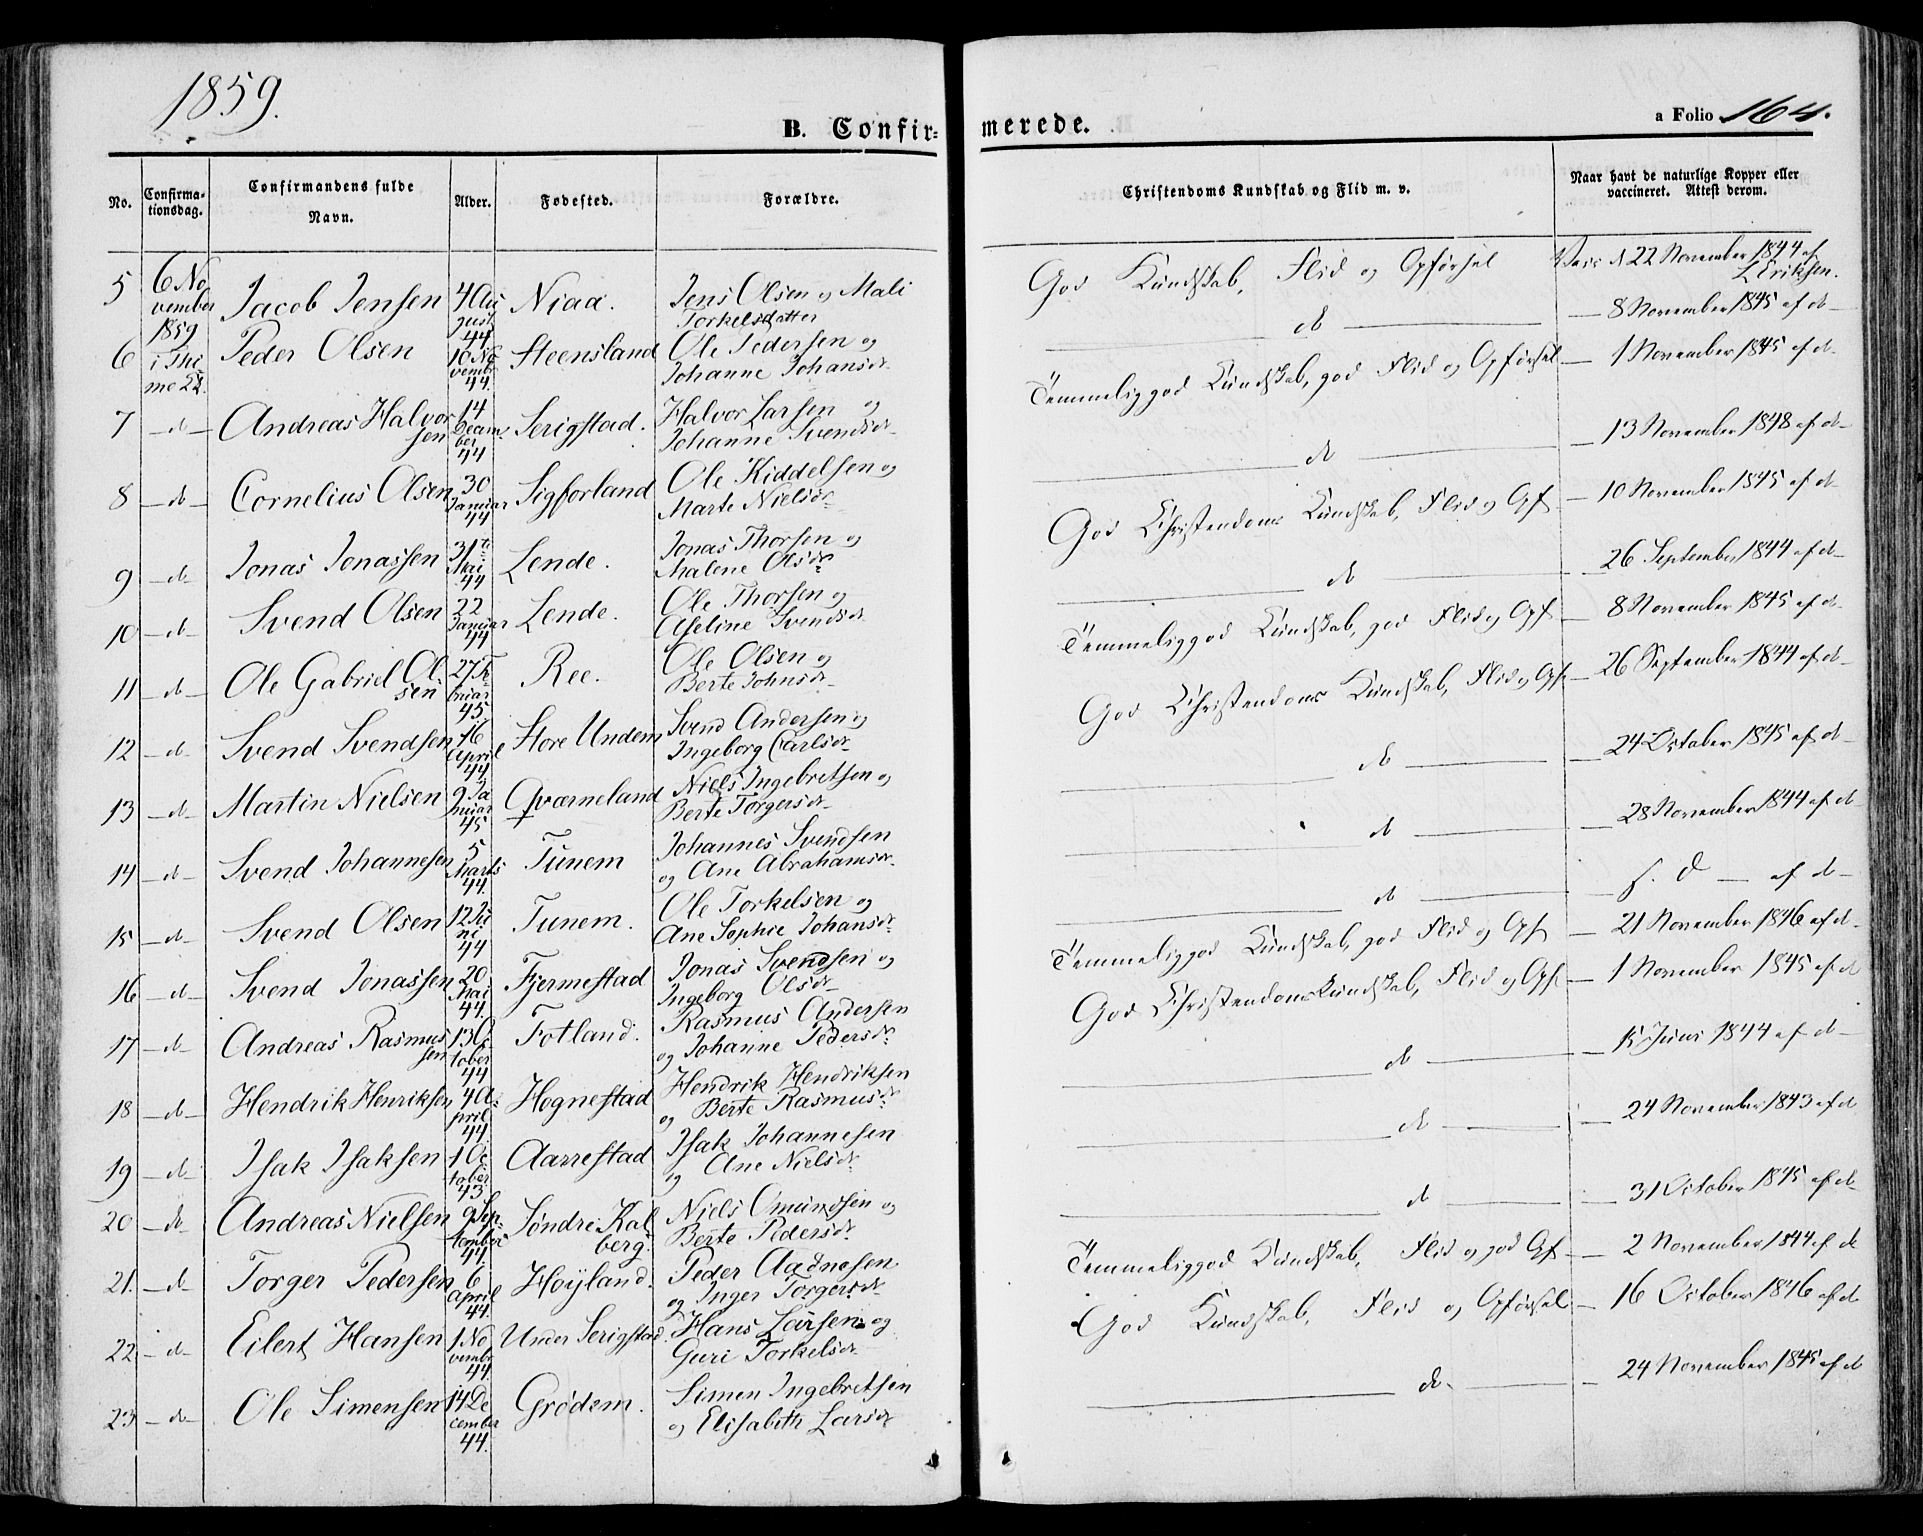 1859.
B. Confir-
merede.
a Folio 164.
No. Confirma-tionsdag. Confirmandens fulde Navn. Alder. Fødested. Forældre. Christendoms Kundskab og Flid m. v. Naar havt de naturlige Kopper eller vaccineret. Attest derom.
5 6 November 1859 i Thime Jacob Jensen 4 August 44 Niaa. Jens Olsen og Mali Torkelsdatter God Kundskab, Flid og Opførsel Vacc d 22 November 1844 af L Eriksen.
6 Peder Olsen 10 Novembr 44. Steensland Ole Pedersen og Johanne Johansdr do — 8 November 1845 af do
7 — do — Andreas Halvorsen 14 Decamber 44 Serigstad. Halvor Larsen og Johanne Svendsdr Temmeliggod Kundskab, god Flid og Opførsel — 1 November 1845 af do
8 — do — Cornelius Olsen 30 Januar 44 Sigforland Ole Kiddelsen og Marte Nielsdr do — 13 November 1848 af do
9 — do — Jonas Jonassen 31te Mai 44 Lende. Jonas Thorsen og Malene Olsdr God Christendoms Kundskab, Flid og Opf — 10 November 1845 af do
10 — do — Svend Olsen 22 Januar 44 Lende. Ole Thorsen og Aseline Svendsdr do — 26 September 1844 af do
11 — do — Ole Gabriel Olsen 27 Februar 45 Ree. Ole Olsen og Berte Johnsdr Temmeliggod Kundskab, god Flid og Opf — 8 November 1845 af do
12 — do — Svend Svendsen 16 April 44 Store Undem Svend Andersen og Ingeborg Carlsdr God Christendoms Kundskab, Flid og Opf — 26 September 1844 af do
13 — do — Martin Nielsen 9 Januar 45 Qværneland Niels Ingebretsen og Berte Torgersdr do — 24 October 1845 af do
14 — do — Svend Johannesen 5 Marts 44. Tunem Johannes Svendsen og Ane Abrahamsdr do — 28 November 1844 af do
15 — do — Svend Olsen 12 Juni 44 Tunem. Ole Torkelsen og Ane Sophie Johansdr do — s. D — af do
16 — do — Svend Jonassen 20 Mai 44. Fjermestad Jonas Svendsen og Ingeborg Olsdr Temmeliggod Kundskab, god Flid og Opf — 21 November 1846 af do
17 — do — Andreas Rasmussen 13 October 44 Fotland. Rasmus Andersen og Johanne Pedersdr God Christendomskundskab, Flid og Opf — 1 November 1845 af do
18 — do — Hendrik Henriksen 4 April 44. Hognestad Hendrik Hendriksen og Berte Rasmusdr do — 15 Juni 1844 af do
19 — do — Isak Isaksen 1 October 43 Aarrestad Isak Johannesen og Ane Nielsdr do — 24 November 1843 af do
20 — do — Andreas Nielsen 9 September 44. Søndre Kalberg. Niels Omundsen og Berte Pedersdr do — 31 October 1845 af do
21. — do — Torger Pedersen 6 April 44. Høyland. Peder Aadnesen og Inger Torgersdr Temmeliggod Kundskab, Flid og god Opf — 2 November 1844 af do
22 — do — Eilert Hansen 1 Novembr 44. Under Serigstad. Hans Larsen og Guri Torkelsdr God Kundskab, Flid og Opførsel — 16 October 1846 af do
23 — do — Ole Simensen 14 December 44. Grødem. Simen Ingebretsen og Elisabeth Larsdr do. — 24 November 1845 af do